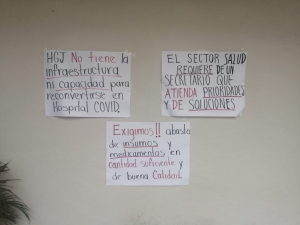 HGJ No tiene la
infraestructura
ni capacidad para
reconvertirse en
Hospital COVID.
EL SECTOR SALUD
REQUIERE DE UN
SECRETARIO QUE
ATIENDA PRIORIDADES
Y DE SOLUCIONES
Exigimos!! abasto
de insumos y
medicamentos en
cantidad suficiente y
de buena Calidad.